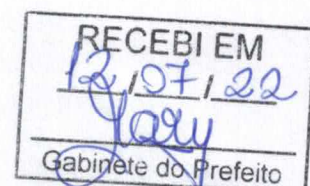 RECEBI EM
12/07/22
Gabinete do Prefeito